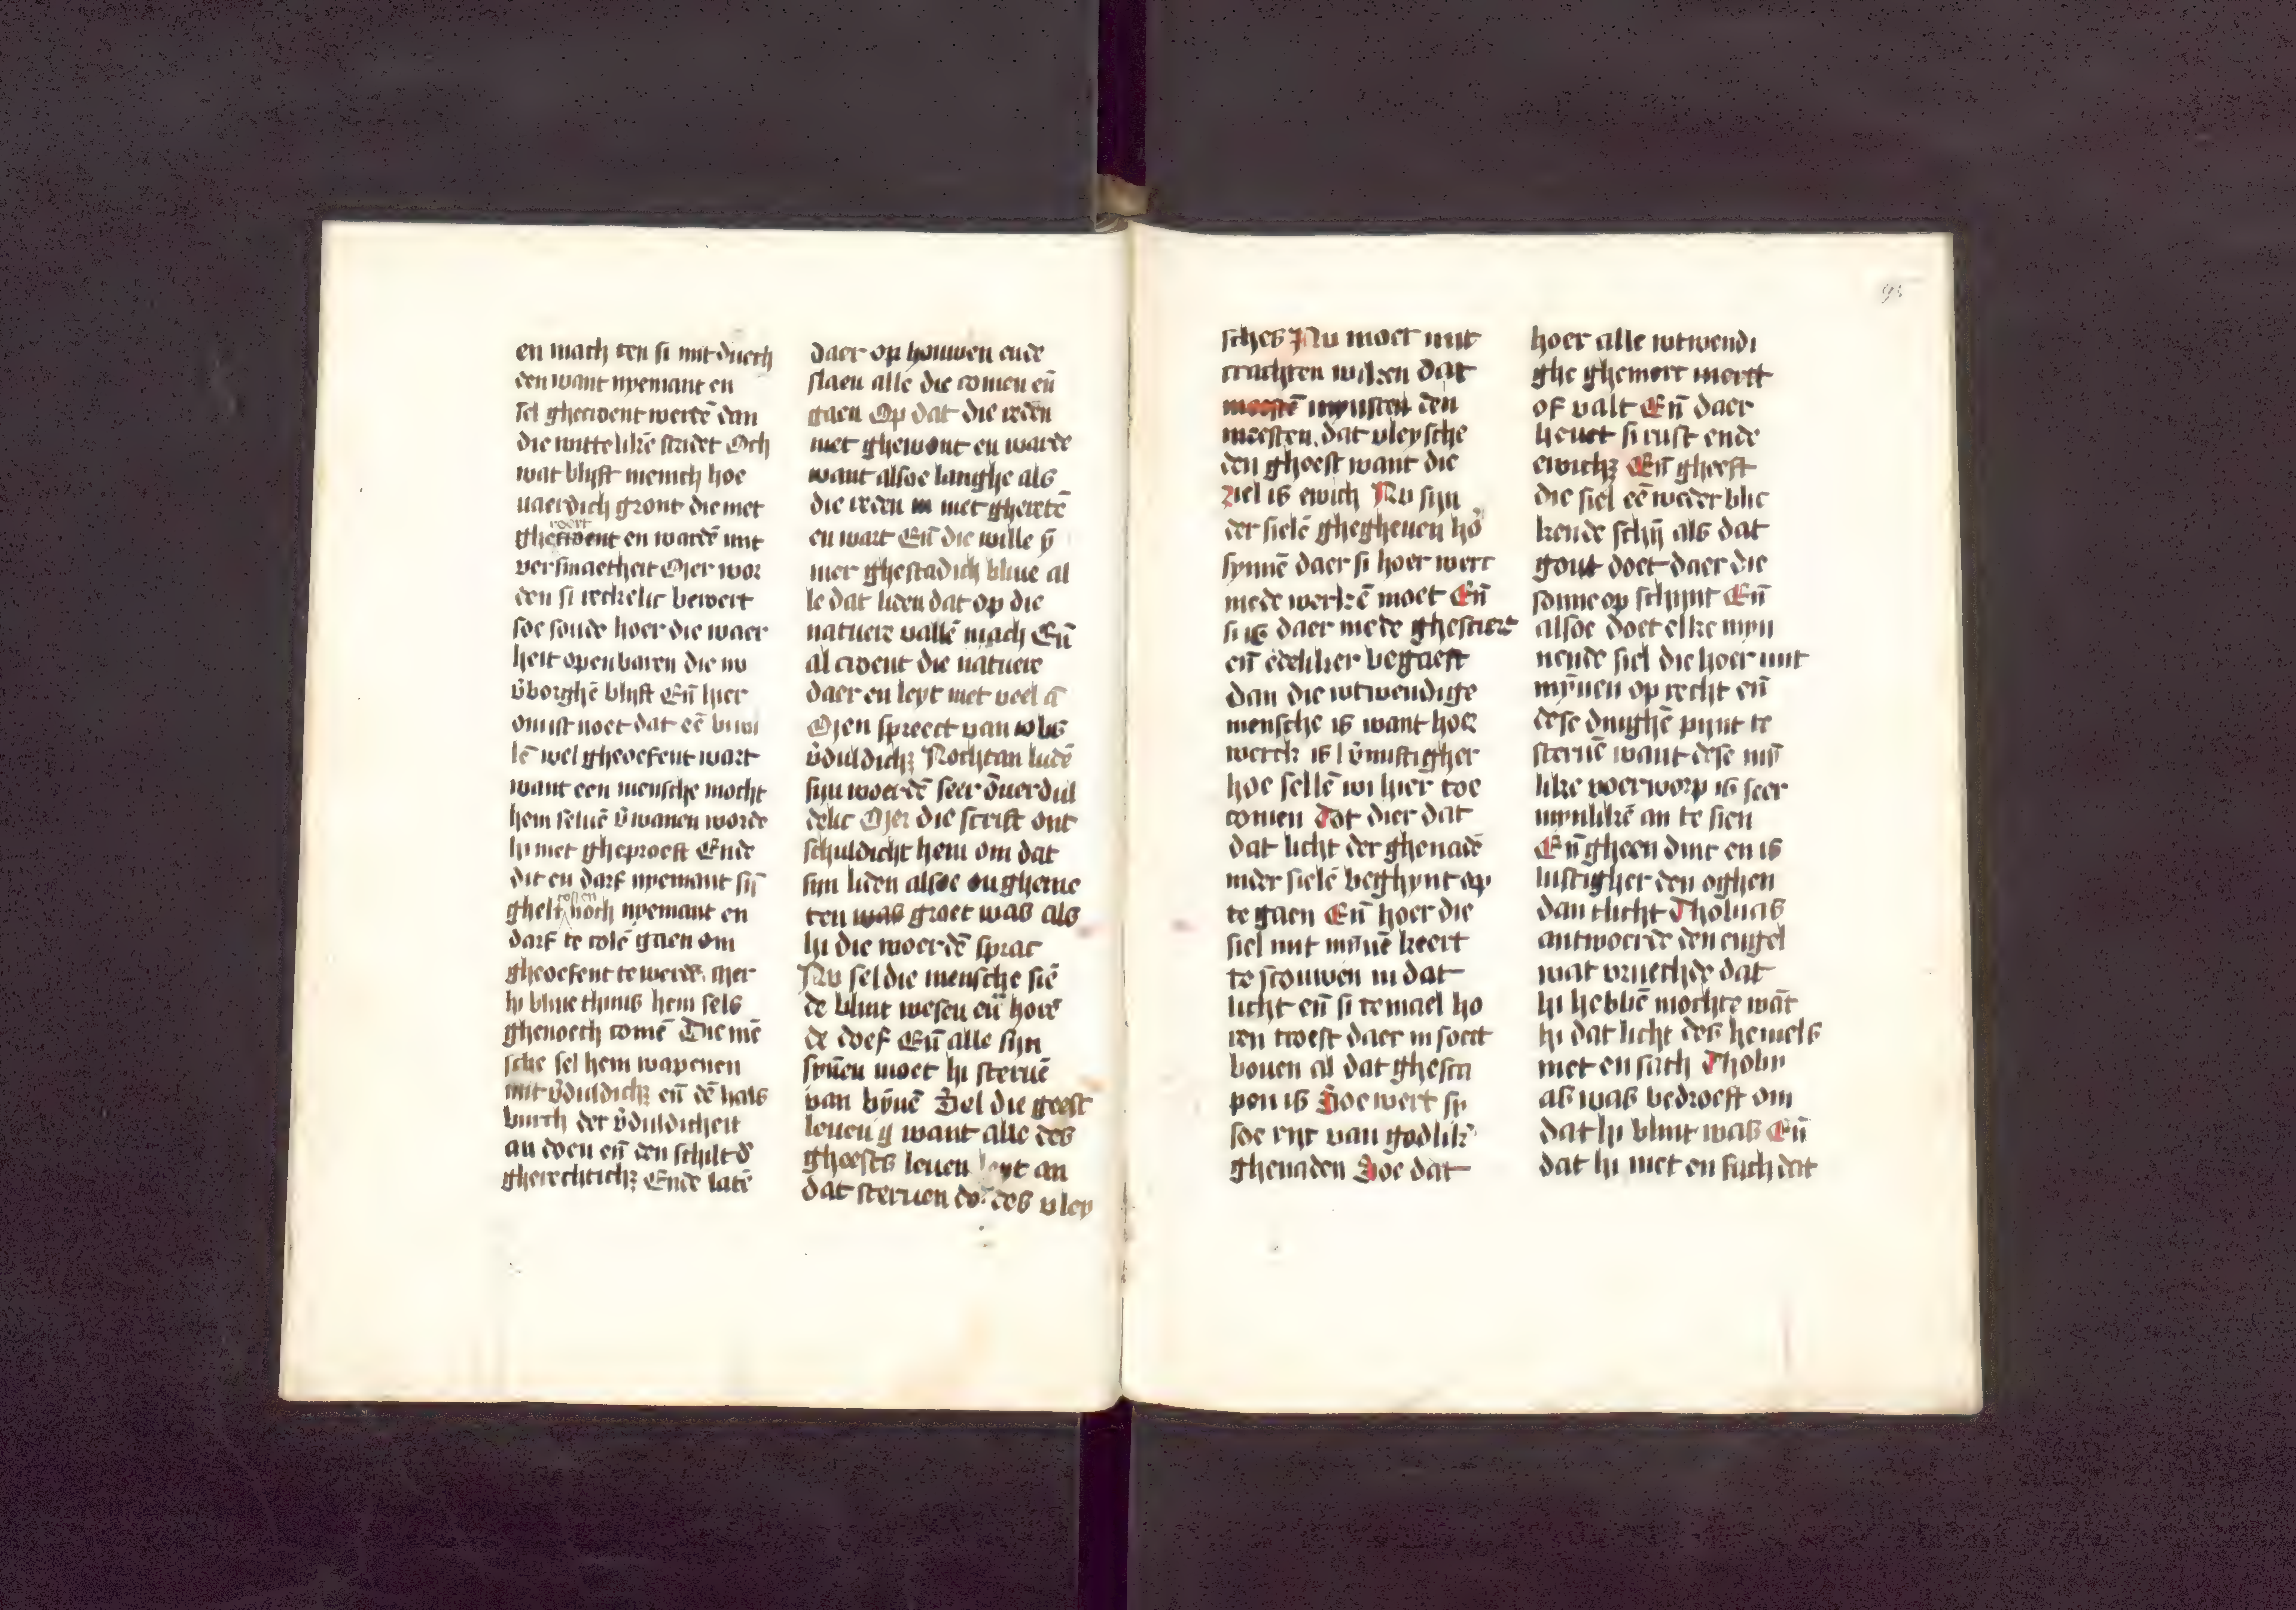 en mach ten si mit duech
den want nyemant en
sel ghecroent werdē dan
die wittelikē stridet Och
wat blijft menich hoe
uaerdich gront die niet
gheroert en wardē mit
versmaetheit Mer wor
den si reckelic beroert
soe soude hoer die waer
heit openbaren die nu
v̄borghē blijft Eñ hier
om ist noet dat eē
lē wel gheoefent wart
want een mensche mocht
hem seluē v̄wanen worde
hi niet gheproeft Ende
dit en darf nyemant sijn
ghelt costen noch nyemant en
darf te colē gaen om
gheoefent te werdē mer
hi bliue thuus hem sels
ghenoech comē Die mē
sche sel hem wapenen
mit v̄duldichz eñ dē hals
burch der v̄duldicheit
an doen eñ den schilt d̄
gherechtichz Ende latē
daer op houwen ende
slaen alle die comen eñ
gaen Op dat die reden
niet ghewont en warde
want alsoe langhe als
die reden niet gheretē
en wart Eñ die wille ȳ
mer ghestadich bliue al
le dat liden dat op die
natuere vallē mach Eñ
al croent die natuere
daer en leyt niet veel an
Men spreect van iobs
v̄duldichz Nochtan ludē
sijn woerdē seer ōuerdul
delic Mer die scrift ont
schuldicht hem om dat
sijn liden alsoe ongheme
ten was groet was als
hi die woerdē sprac
Nu sel die mensche siē
de blint wesen eñ horē
de doef Eñ alle sijn
sȳnen moet hi steruē
van bȳnē Sel die geest
leuen want alle des
gheests leuen leyt an
dat steruen des vley
sches Nu moet mit
crachten wiken dat
meestē mynsten den
meesten dat vleysche
den gheest want die
ziel is ewich Nu sijn
der sielē ghegheuen ho
synnē daer si hoer werc
mede werkē moet Eñ
si is daer mede ghesciert
eñ edeliker begaeft
dan die wtwendige
mensche is want hoer
werck is v̄nuftigher
hoe sellē wi hier toe
comen Tot dier dat
dat licht der ghenadē
inder sielē beghynt op
te gaen Eñ hoer die
siel mit mȳnē keert
te scouwen in dat
licht eñ si temael ho
ren troest daer in soect
bouen al dat ghesca
pen is Soe wert si
soe rijc van godlikē
ghenaden Soe dat
hoer alle wtwendi
ghe ghemert mertt
of valt Eñ daer
heuet si rust ende
ewichz Eñ gheeft
die siel eē weder blic
kende schijn als dat
gout doet daer die
sonne op schijnt Eñ
alsoe doet elke myn
nende siel die hoer mit
mȳnen op recht eñ
dese dinghē pijnt te
steruē want dese myn
like voerworp is seer
mynlikē an te sien
Eñ gheen dinc en is
lustigher den oghen
dan tlicht Thobias
antwoerde den engel
wat vruechde dat
hi hebbē mochte wāt
hi dat licht des hemels
niet en sach Thobi
as was bedroeft om
dat hi blint was Eñ
dat hi niet en sach dat
95